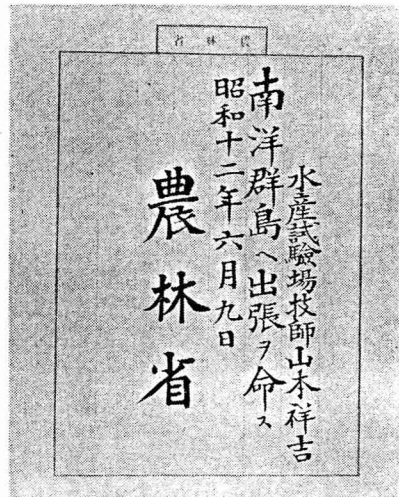 農林省
水産試験場技師山本祥吉
南洋群島ヘ出張ヲ命ス
昭和十二年六月九日
農林省